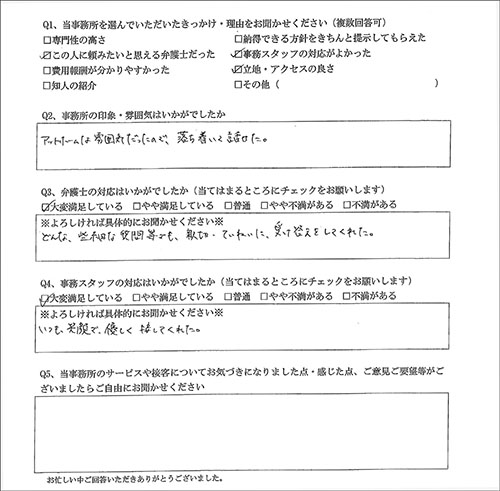 Q1、当事務所を選んでいただいたきっかけ・理由をお聞かせください（複数回答可）
□専門性の高さ　□納得できる方針をきちんと提示してもらえた
☑この人に頼みたいと思える弁護士だった　☑事務スタッフの対応がよかった
□費用報酬が分かりやすかった　☑立地・アクセスの良さ
□知人の紹介　□その他（　）
Q2、事務所の印象・雰囲気はいかがでしたか
アットホームな雰囲気だったので、落ち着いて話せた。
Q3、弁護士の対応はいかがでしたか（当てはまるところにチェックをお願いします）
☑大変満足している　□やや満足している　□普通　□やや不満がある　□不満がある
※よろしければ具体的にお聞かせください※
どんな、些細な質問等でも、親切・ていねいに、受け答えをしてくれた。
Q4、事務スタッフの対応はいかがでしたか（当てはまるところにチェックをお願いします）
☑大変満足している　□やや満足している　□普通　□やや不満がある　□不満がある
※よろしければ具体的にお聞かせください※
いつも笑顔で、優しく接してくれた。
Q5、当事務所のサービスや接客についてお気づきになりました点・感じた点、ご意見ご要望等がご
ざいましたらご自由にお聞かせください
お忙しい中ご回答いただきありがとうございました。